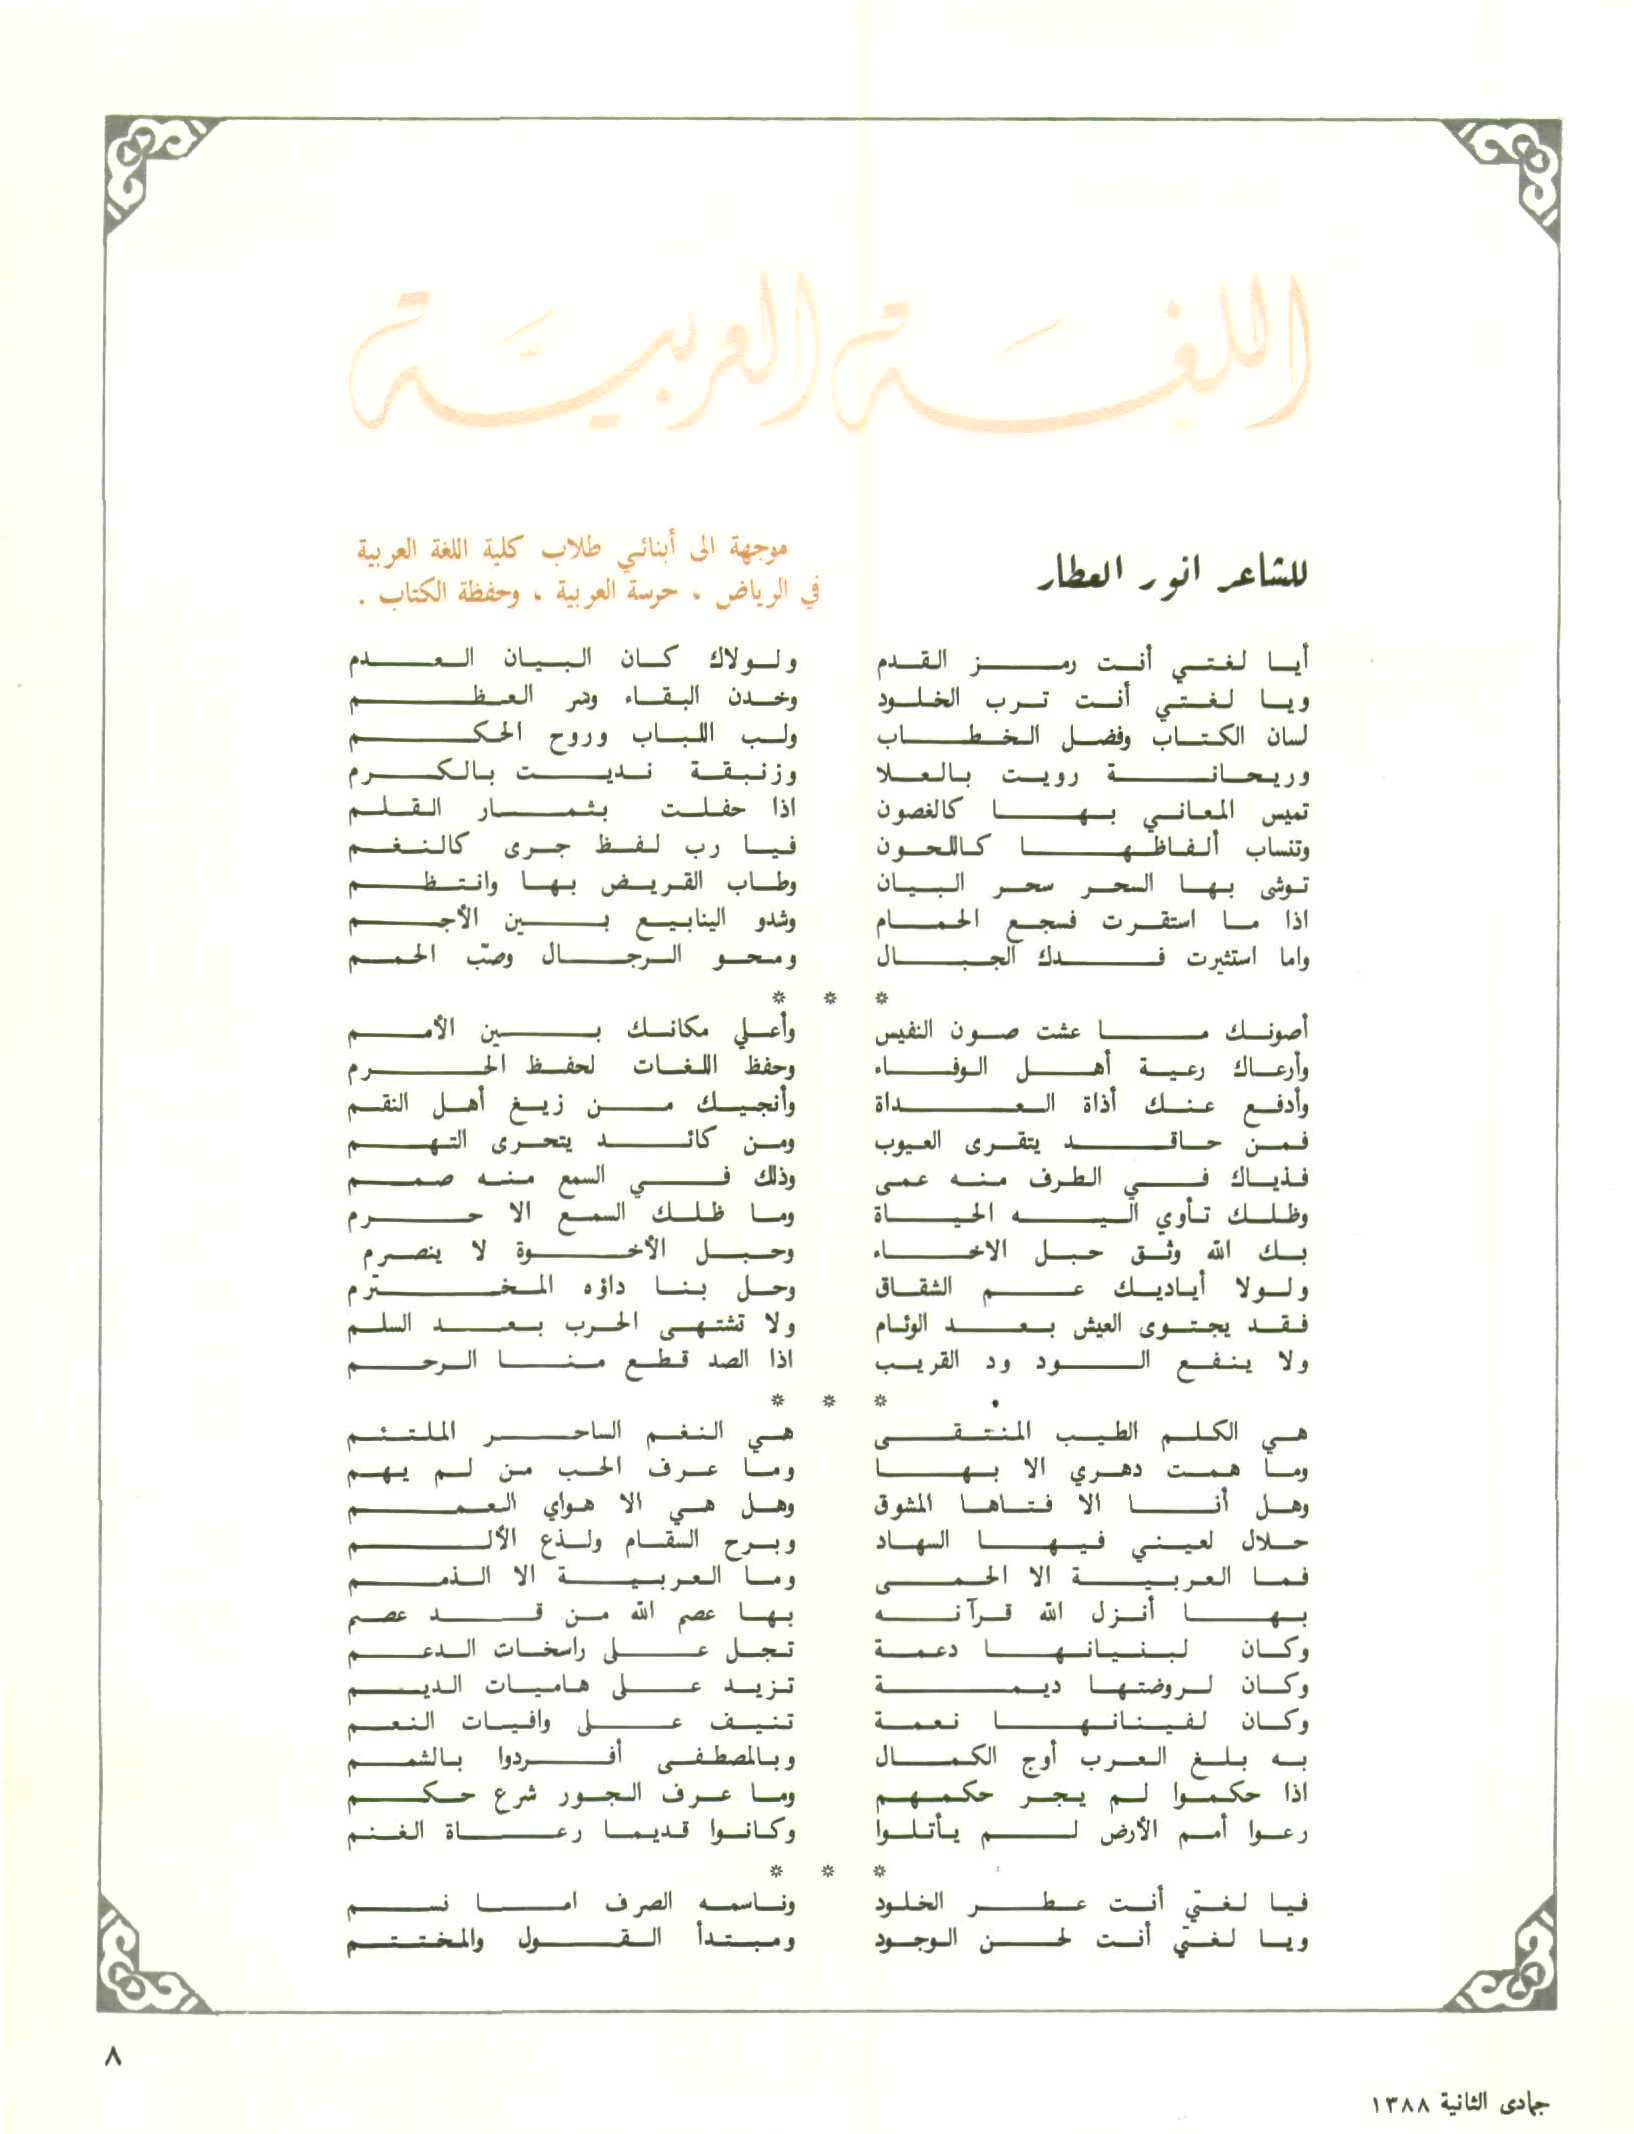 اللغة العربية
للشاعر انور العطار
موجهة الى أبنائي طلاب كلية اللغة العربية
في الرياض ، حرسة العربية ، وحفظة الكتاب .
أيا لغتي أنت رمز القدم ولولاك كان البيان العدم
ويا لغتي أنت ترب الخلود وخدن البقاء وسر العظم
لسان الكتاب وفضل الخطاب ولب اللباب وروح الحكم
وريحانة رويت بالعلا وزنبقة نديت بالكرم
تميس المعاني بها كالغصون اذا حفلت بثمار القلم
وتنساب ألفاظها كاللحون فيا رب لفظ جرى كالنغم
توشى بها السحر سحر البيان وطاب القريض بها وانتظم
اذا ما استقرت فسجع الحمام وشدو الينابيع بين الأجم
واما استثيرت فدك الجبال ومحو الرجال وصبّ الحمم
* * *
أصونك ما عشت صون النفيس وأعلي مكانك بين الأمم
وأرعاك رعية أهل الوفاء وحفظ اللغات لحفظ الحرم
وأدفع عنك أذاة العداة وأنجيك من زيغ أهل النقم
فمن حاقد يتقرى العيوب ومن كائد يتحرى التهم
فذياك في الطرف منه عمى وذلك في السمع منه صمم
وظلك تأوي اليه الحياة وما ظلك السمع الا حرم
بك الله وثق حبل الاخاء وحبل الأخوة لا ينصرم
ولولا أياديك عم الشقاق وحل بنا داؤه المخترم
فقد يجتوى العيش بعد الوئام ولا تشتهى الحرب بعد السلم
ولا ينفع الود ود القريب اذا الصد قطع منا الرحم
* * *
هي الكلم الطيب المنتقى هي النغم الساحر الملتئم
وما همت دهري الا بها وما عرف الحب من لم يهم
وهل أنا الا فتاها المشوق وهل هي الا هواي العمم
حلال لعيني فيها السهاد وبرح السقام ولذع الألم
فما العربية الا الحمى وما العربية الا الذمم
بها أنزل الله قرآنه بها عصم الله من قد عصم
وكان لبنيانها دعمة تجل على راسخات الدعم
وكان لروضتها ديمة تزيد على هاميات الديم
وكان لفينانها نعمة تنيف على وافيات النعم
به بلغ العرب أوج الكمال وبالمصطفى أفردوا بالشمم
اذا حكموا لم يجر حكمهم وما عرف الجور شرع حكم
رعوا أمم الأرض لم يأتلوا وكانوا قديما رعاة الغنم
* * *
فيا لغتي أنت عطر الخلود وناسمه الصرف اما نسم
ويا لغتي أنت لحن الوجود ومبتدأ القول والمختتم
٨
جمادى الثانية ١٣٨٨